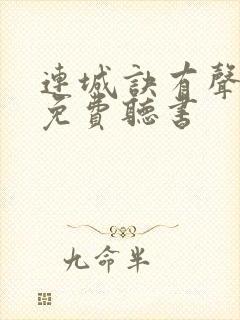 連城訣有聲
免費聽書
九命半